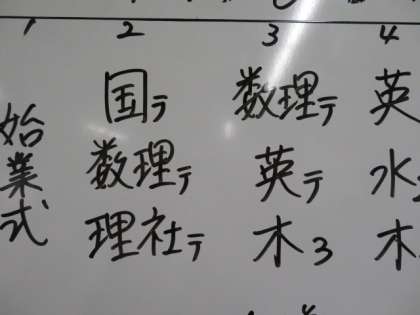 1 2 3 4
始業式
国テ 数理テ 英
数理テ 英テ 水
理社テ 木3 木